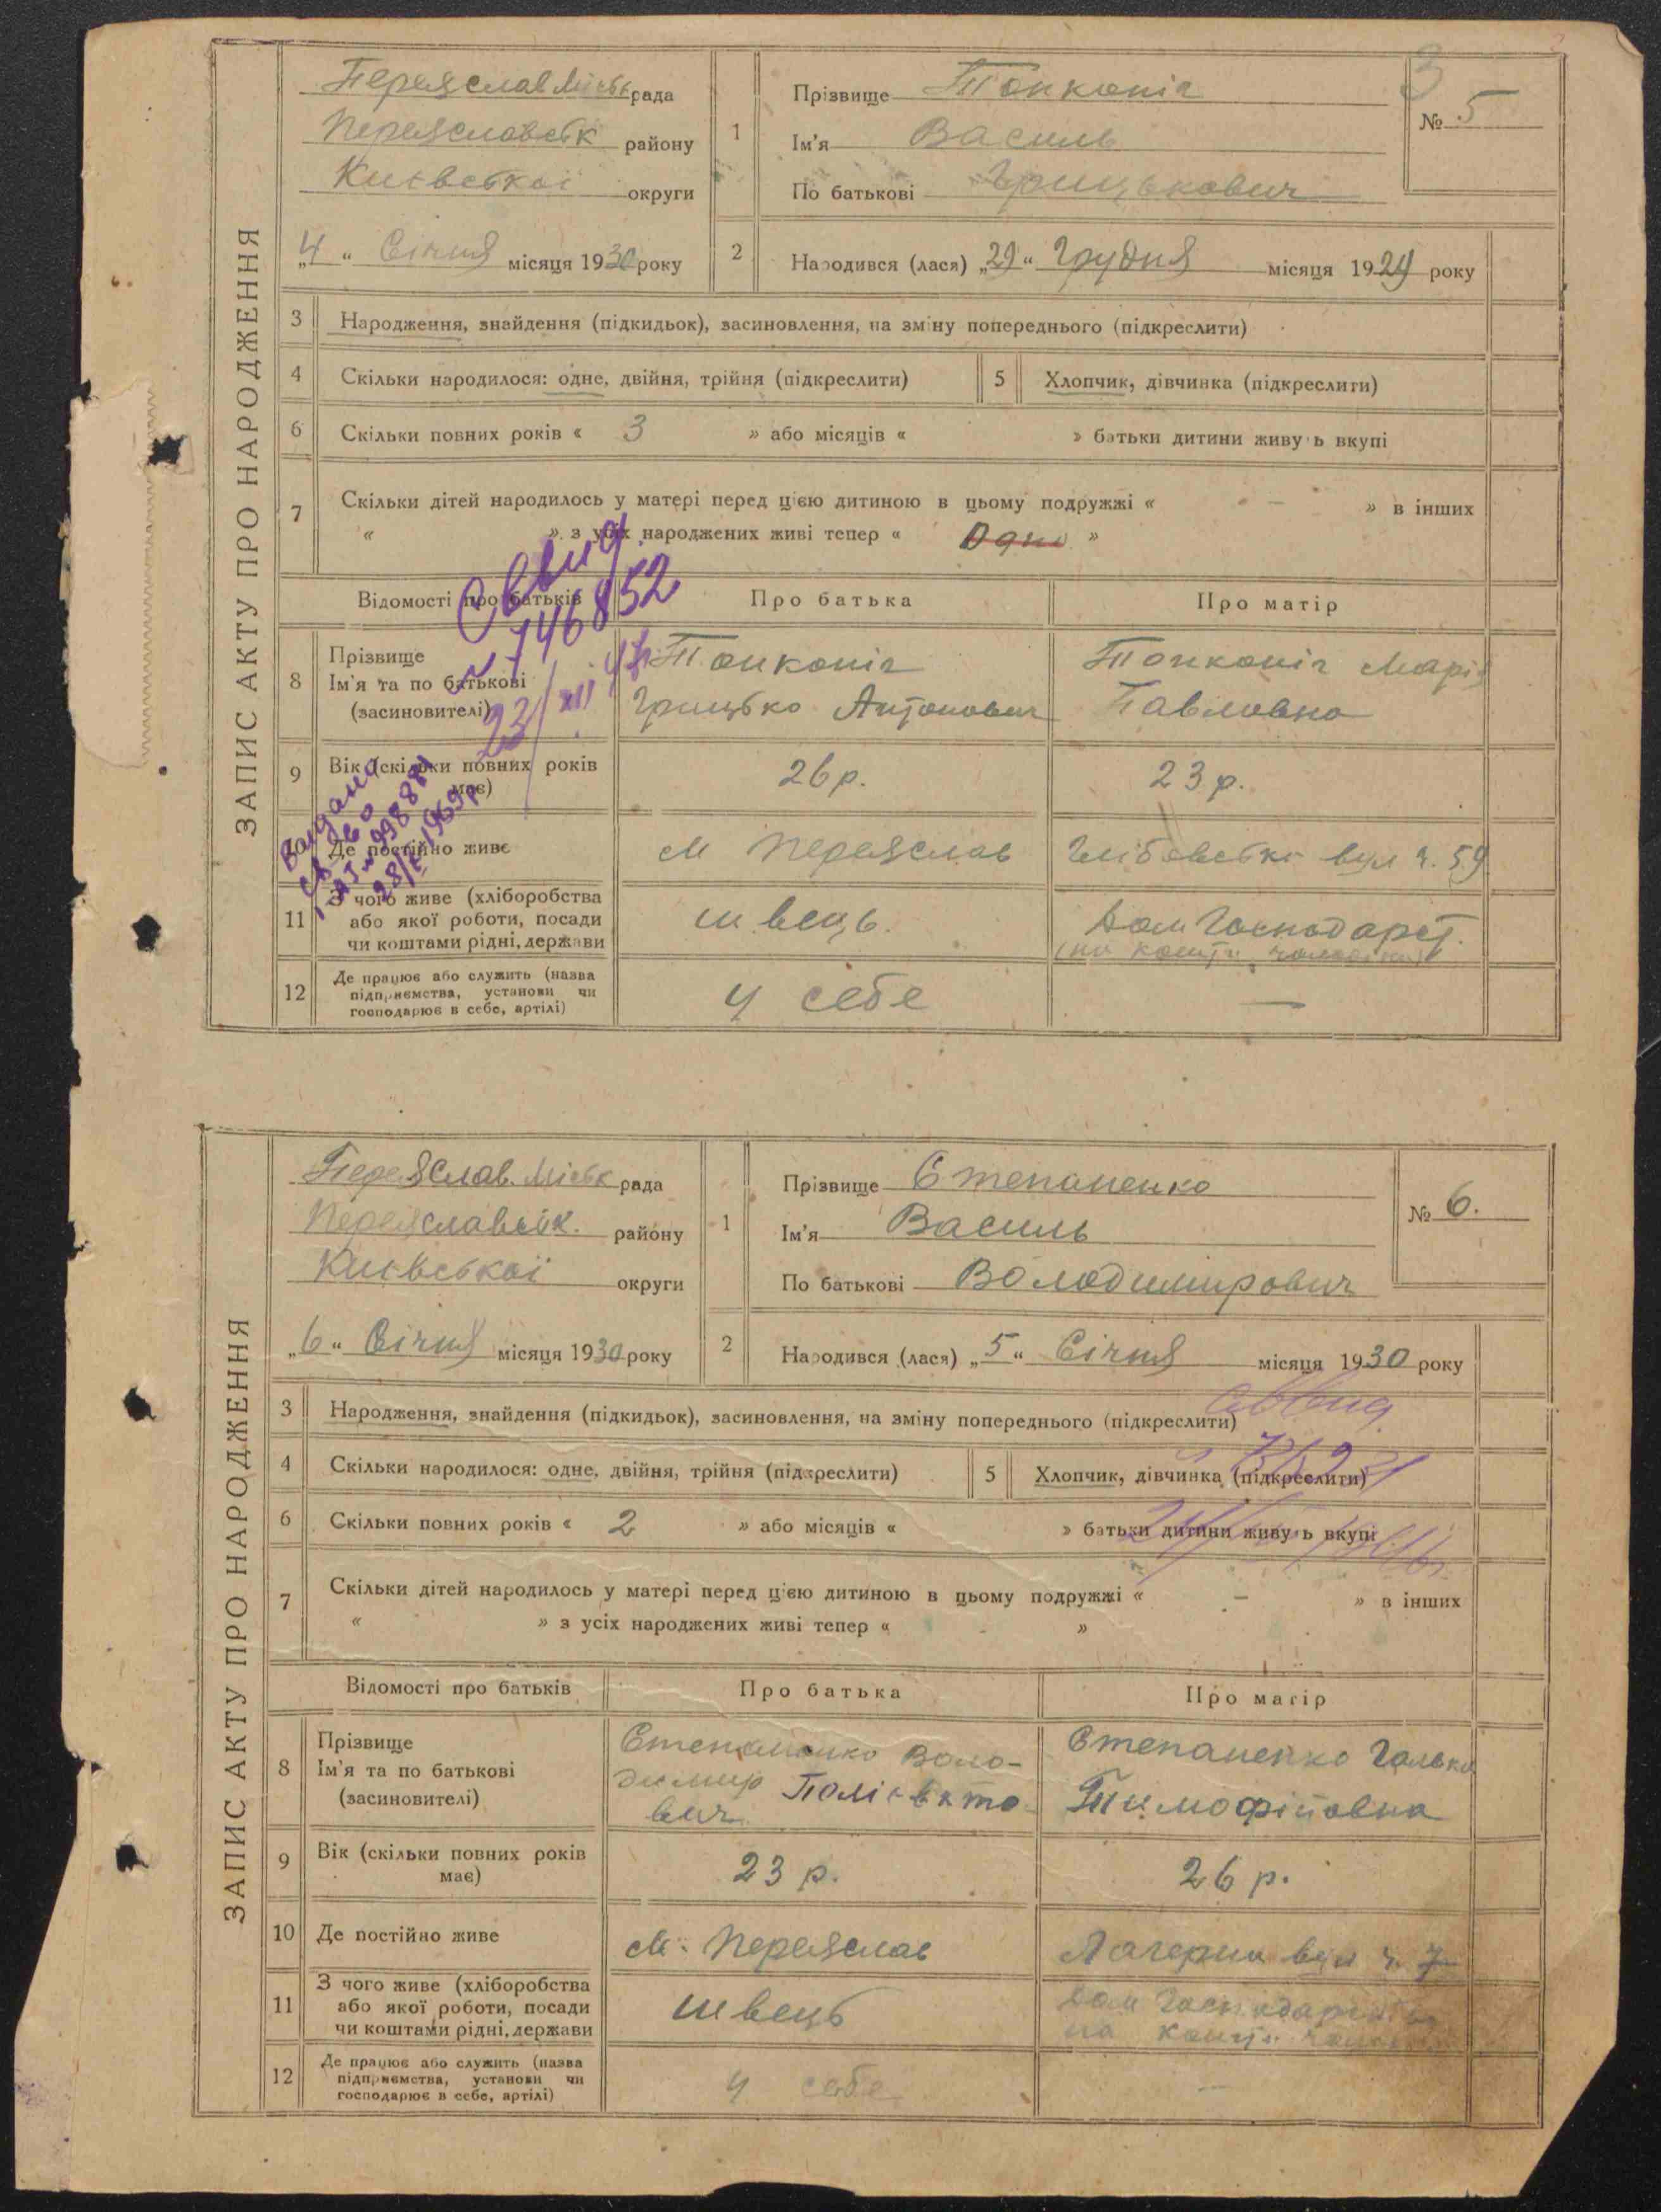 3
ЗАПИС АКТУ ПРО НАРОДЖЕННЯ
Переяслав Міськ рада
Переяславськ району
Київської округи
„4“ Січня місяця 1930 року
1
Прізвище Тонконіг
Ім'я Василь
По батькові Грицькович
№ 5
2
Народився (лася) „29“ Грудня місяця 1929 року
3 Народження, знайдення (підкидьок), засиновлення, на зміну попереднього (підкреслити)
4 Скільки народилося: одне, двійня, трійня (підкреслити) 5 Хлопчик, дівчинка (підкреслити)
6 Скільки повних років « 3 » або місяців « » батьки дитини живуть вкупі
7 Скільки дітей народилось у матері перед цією дитиною в цьому подружжі « — » в інших
« » з усіх народжених живі тепер « Одно »
Свид
№ 746852
23/XII
Відомості про батьків Про батька Про матір
8 Прізвище
Ім'я та по батькові
(засиновителі)
Тонконіг
Грицько Антонович
Тонконіг Марія
Павловна
9 Вік (скільки повних років
має)
26 р. 23 р.
Видано
1969р
10 Де постійно живе м Переяслав вул ч. 59
11 З чого живе (хліборобства
або якої роботи, посади
чи коштами рідні, держави
швець. Дом Господарст.
12 Де працює або служить (назва
підприємства, установи чи
господарює в себе, артілі)
у себе —
ЗАПИС АКТУ ПРО НАРОДЖЕННЯ
Переяслав. Міськ рада
Переяславськ. району
Київської округи
„6“ Січня місяця 1930 року
1
Прізвище Степаненко
Ім'я Василь
По батькові Володимирович
№ 6.
2
Народився (лася) „5“ Січня місяця 1930 року
3 Народження, знайдення (підкидьок), засиновлення, на зміну попереднього (підкреслити)
4 Скільки народилося: одне, двійня, трійня (підкреслити) 5 Хлопчик, дівчинка (підкреслити)
6 Скільки повних років « 2 » або місяців « » батьки дитини живуть вкупі
7 Скільки дітей народилось у матері перед цією дитиною в цьому подружжі « — » в інших
« » з усіх народжених живі тепер « - »
Відомості про батьків Про батька Про матір
8 Прізвище
Ім'я та по батькові
(засиновителі)
Степаненко Воло-
димир Полієвкто-
вич
Степаненко Галька
Тимофіївна
9 Вік (скільки повних років
має)
23 р. 26 р.
10 Де постійно живе м. Переяслав Лагерна вул ч. 7
11 З чого живе (хліборобства
або якої роботи, посади
чи коштами рідні, держави
швець
12 Де працює або служить (назва
підприємства, установи чи
господарює в себе, артілі)
у себе —